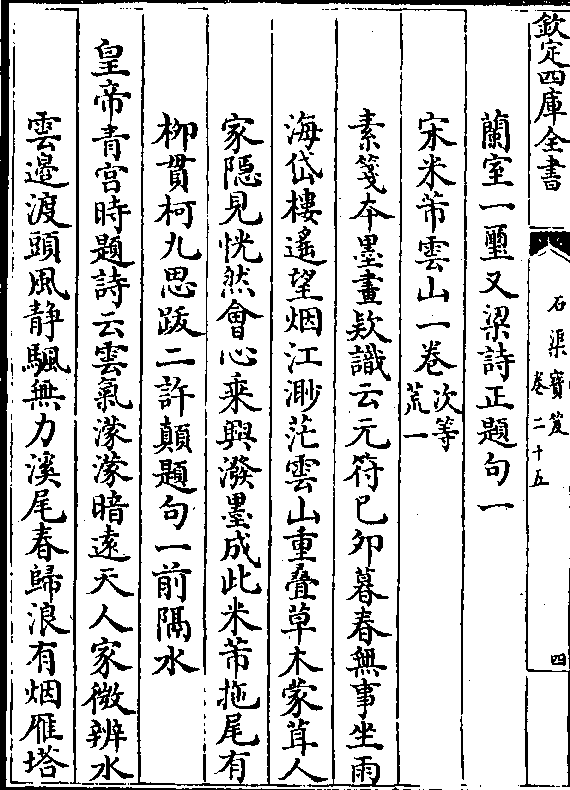 欽定四庫全書
石渠寶笈
卷二十五
四
蘭室一璽又梁詩正題句一
宋米芾雲山一卷次等
荒一
素箋本墨畫款識云元符已卯暮春無事坐雨
海岱樓遙望烟江渺茫雲山重疊草木蒙茸人
家隱見恍然會心乗興潑墨成此米芾拖尾有
柳貫柯九思跋二許顛題句一前隔水
皇帝青宮時題詩云雲氣濛濛暗遠天人家微辨水
雲邉渡頭風静颿無力溪尾春歸浪有烟雁塔